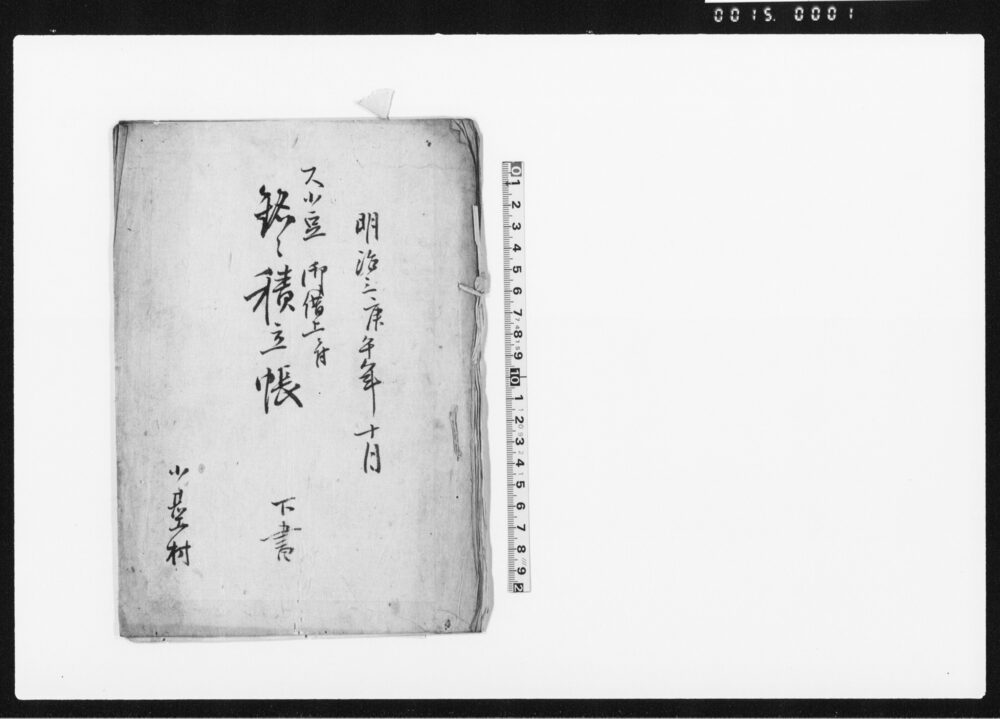 0015. 0001
明治三庚午年 十月
大小豆 御借上ニ付
銘々積立帳
下書
小基村